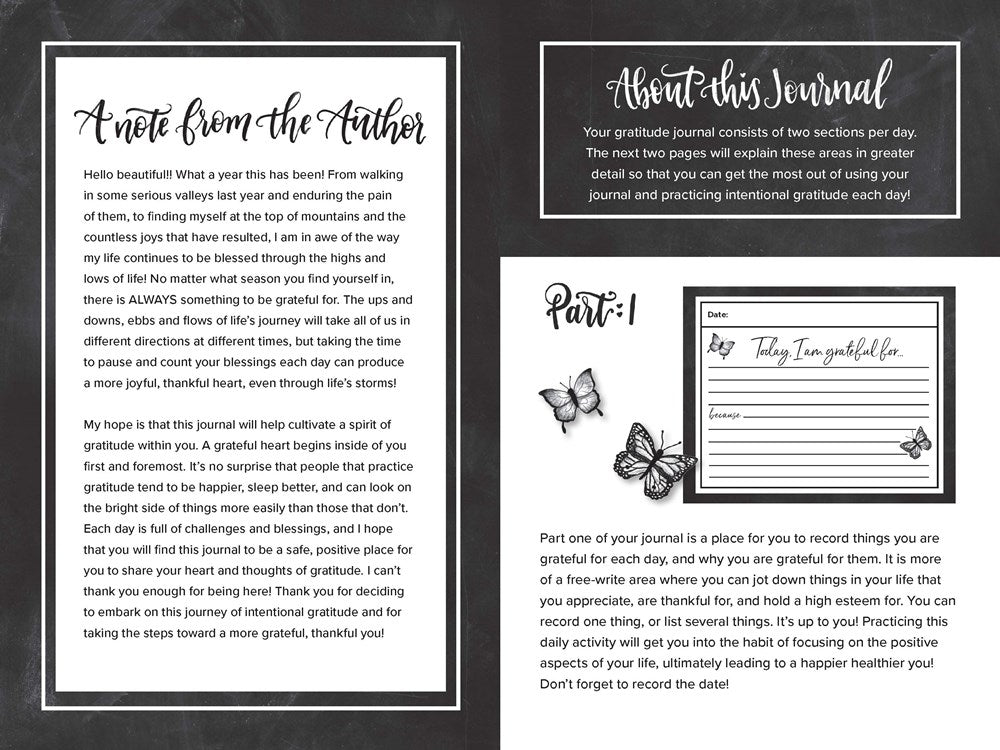 A note from the Author
Hello beautiful!! What a year this has been! From walking
in some serious valleys last year and enduring the pain
of them, to finding myself at the top of mountains and the
countless joys that have resulted, I am in awe of the way
my life continues to be blessed through the highs and
lows of life! No matter what season you find yourself in,
there is ALWAYS something to be grateful for. The ups and
downs, ebbs and flows of life's journey will take all of us in
different directions at different times, but taking the time
to pause and count your blessings each day can produce
a more joyful, thankful heart, even through life's storms!
My hope is that this journal will help cultivate a spirit of
gratitude within you. A grateful heart begins inside of you
first and foremost. It's no surprise that people that practice
gratitude tend to be happier, sleep better, and can look on
the bright side of things more easily than those that don't.
Each day is full of challenges and blessings, and I hope
that you will find this journal to be a safe, positive place for
you to share your heart and thoughts of gratitude. I can't
thank you enough for being here! Thank you for deciding
to embark on this journey of intentional gratitude and for
taking the steps toward a more grateful, thankful you!
About this Journal
Your gratitude journal consists of two sections per day.
The next two pages will explain these areas in greater
detail so that you can get the most out of using your
journal and practicing intentional gratitude each day!
Part: 1
Date:
Today, I am grateful for...
because
Part one of your journal is a place for you to record things you are
grateful for each day, and why you are grateful for them. It is more
of a free-write area where you can jot down things in your life that
you appreciate, are thankful for, and hold a high esteem for. You can
record one thing, or list several things. It's up to you! Practicing this
daily activity will get you into the habit of focusing on the positive
aspects of your life, ultimately leading to a happier healthier you!
Don't forget to record the date!